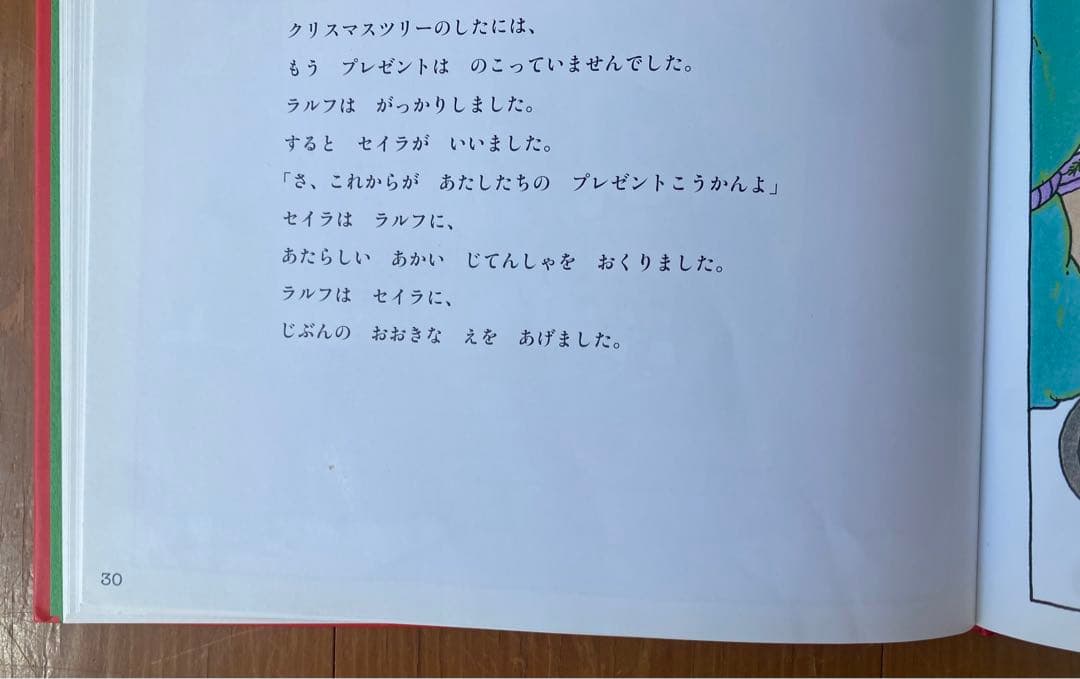 クリスマスツリーのしたには、
もう　プレゼントは　のこっていませんでした。
ラルフは　がっかりしました。
すると　セイラが　いいました。
「さ、これからが　あたしたちの　プレゼントこうかんよ」
セイラは　ラルフに、
あたらしい　あかい　じてんしゃを　おくりました。
ラルフは　セイラに、
じぶんの　おおきな　えを　あげました。
30